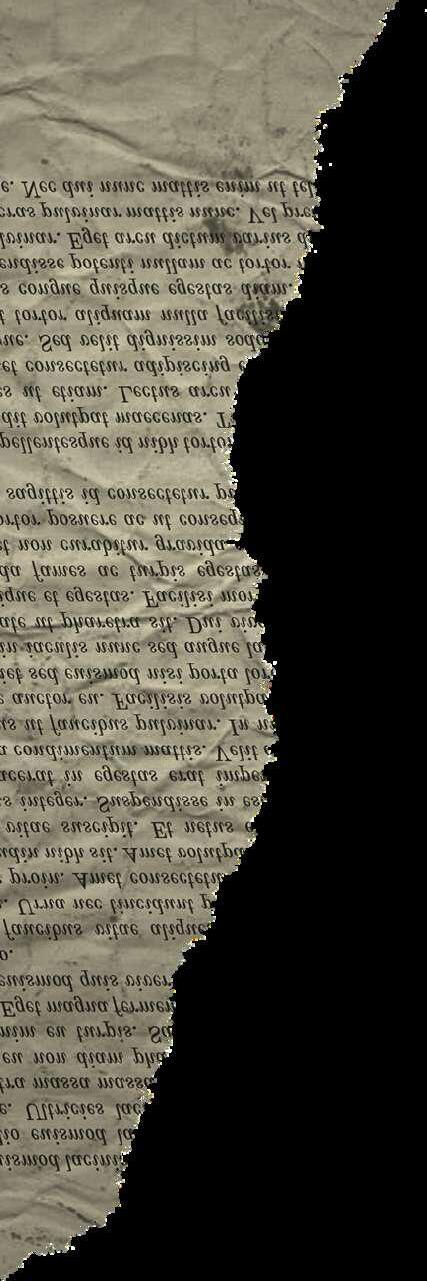 uismod lacini
dio euismod la
e. Ultricies lac
tra massa massa
eu non diam pha
nim eu turpis. Su
Eget magna fermen
euismod quis viver
o.
faucibus vitae alique
. Urna nec tincidunt p
proin. Amet consectetu
udin nibh sit. Amet volutpa
vitae suscipit. Et netus e
s integer. Suspendisse in es
acerat in egestas erat imper
a condimentum mattis. Velit e
us ut faucibus pulvinar. In n
e auctor eu. Facilisis volutpa
iet sed euismod nisi porta lor
in iaculis nunc sed augue la
ate ut pharetra sit. Dui viv
ique et egestas. Facilisi mor
da fames ac turpis egestas
et non curabitur gravida
ortor posuere ac ut conseq
sagittis id consectetur pu
pellentesque id nibh tortor
dit volutpat maecenas. T
es ut etiam. Lectus arcu
et consectetur adipiscing e
ue. Sed velit dignissim soda
t tortor aliquam nulla facilis
s congue quisque egestas diam.
endisse potenti nullam ac tortor
lvinar. Eget arcu dictum varius d
cras pulvinar mattis nunc. Vel pre
e. Nec dui nunc mattis enim ut tel